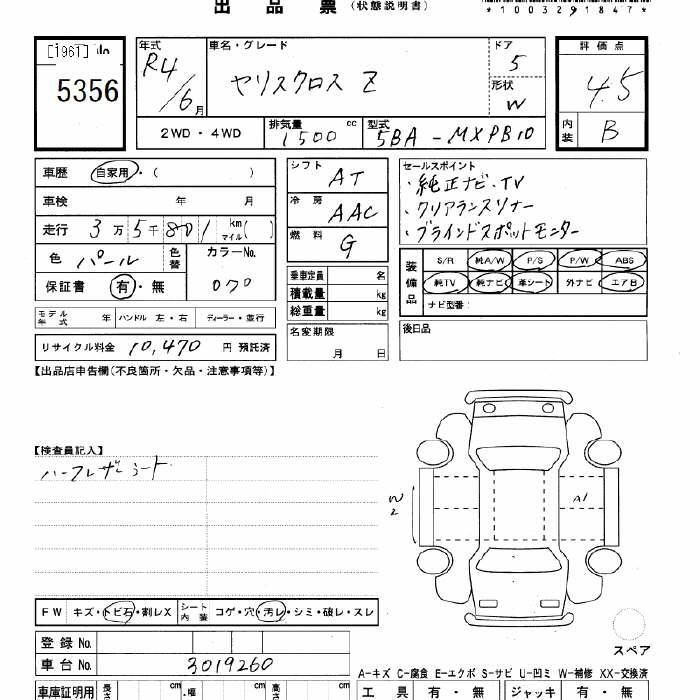 出品票 (状態説明書)
*1003291847*
[1961]
5356
年式 R4/6月
車名・グレード ヤリスクロス Z
ドア 5
形状 W
2WD・4WD
排気量 1500 cc
型式 5BA-MXPB10
評価点 4.5
内装 B
車歴 自家用・( )
車検 年 月
走行 3万5千801 km マイル( )
色 パール 色替
カラーNo. 070
保証書 有・無
モデル年式 年 ハンドル 左・右 ディーラー・並行
リサイクル料金 10,470 円 預託済
シフト AT
冷房 AAC
燃料 G
乗車定員 名
積載量 kg
総重量 kg
名変期限 月 日
セールスポイント
・純正ナビ・TV
・クリアランスソナー
・ブラインドスポットモニター
装備品 S/R 純A/W P/S P/W ABS
純TV 純ナビ 革シート 外ナビ エアB
ナビ型番:
後日品
【出品店申告欄(不良箇所・欠品・注意事項等)】
【検査員記入】
ハーフレザーシート
W2
A1
FW キズ・トビ石・割レX シート内装 コゲ・穴・汚レ・シミ・破レ・スレ
登録 No.
車台 No. 3019260
スペア
A-キズ C-腐食 E-エクボ S-サビ U-凹ミ W-補修 XX-交換済
車庫証明用 長さ cm ・幅 cm 高さ cm
工具 有・無 ジャッキ 有・無